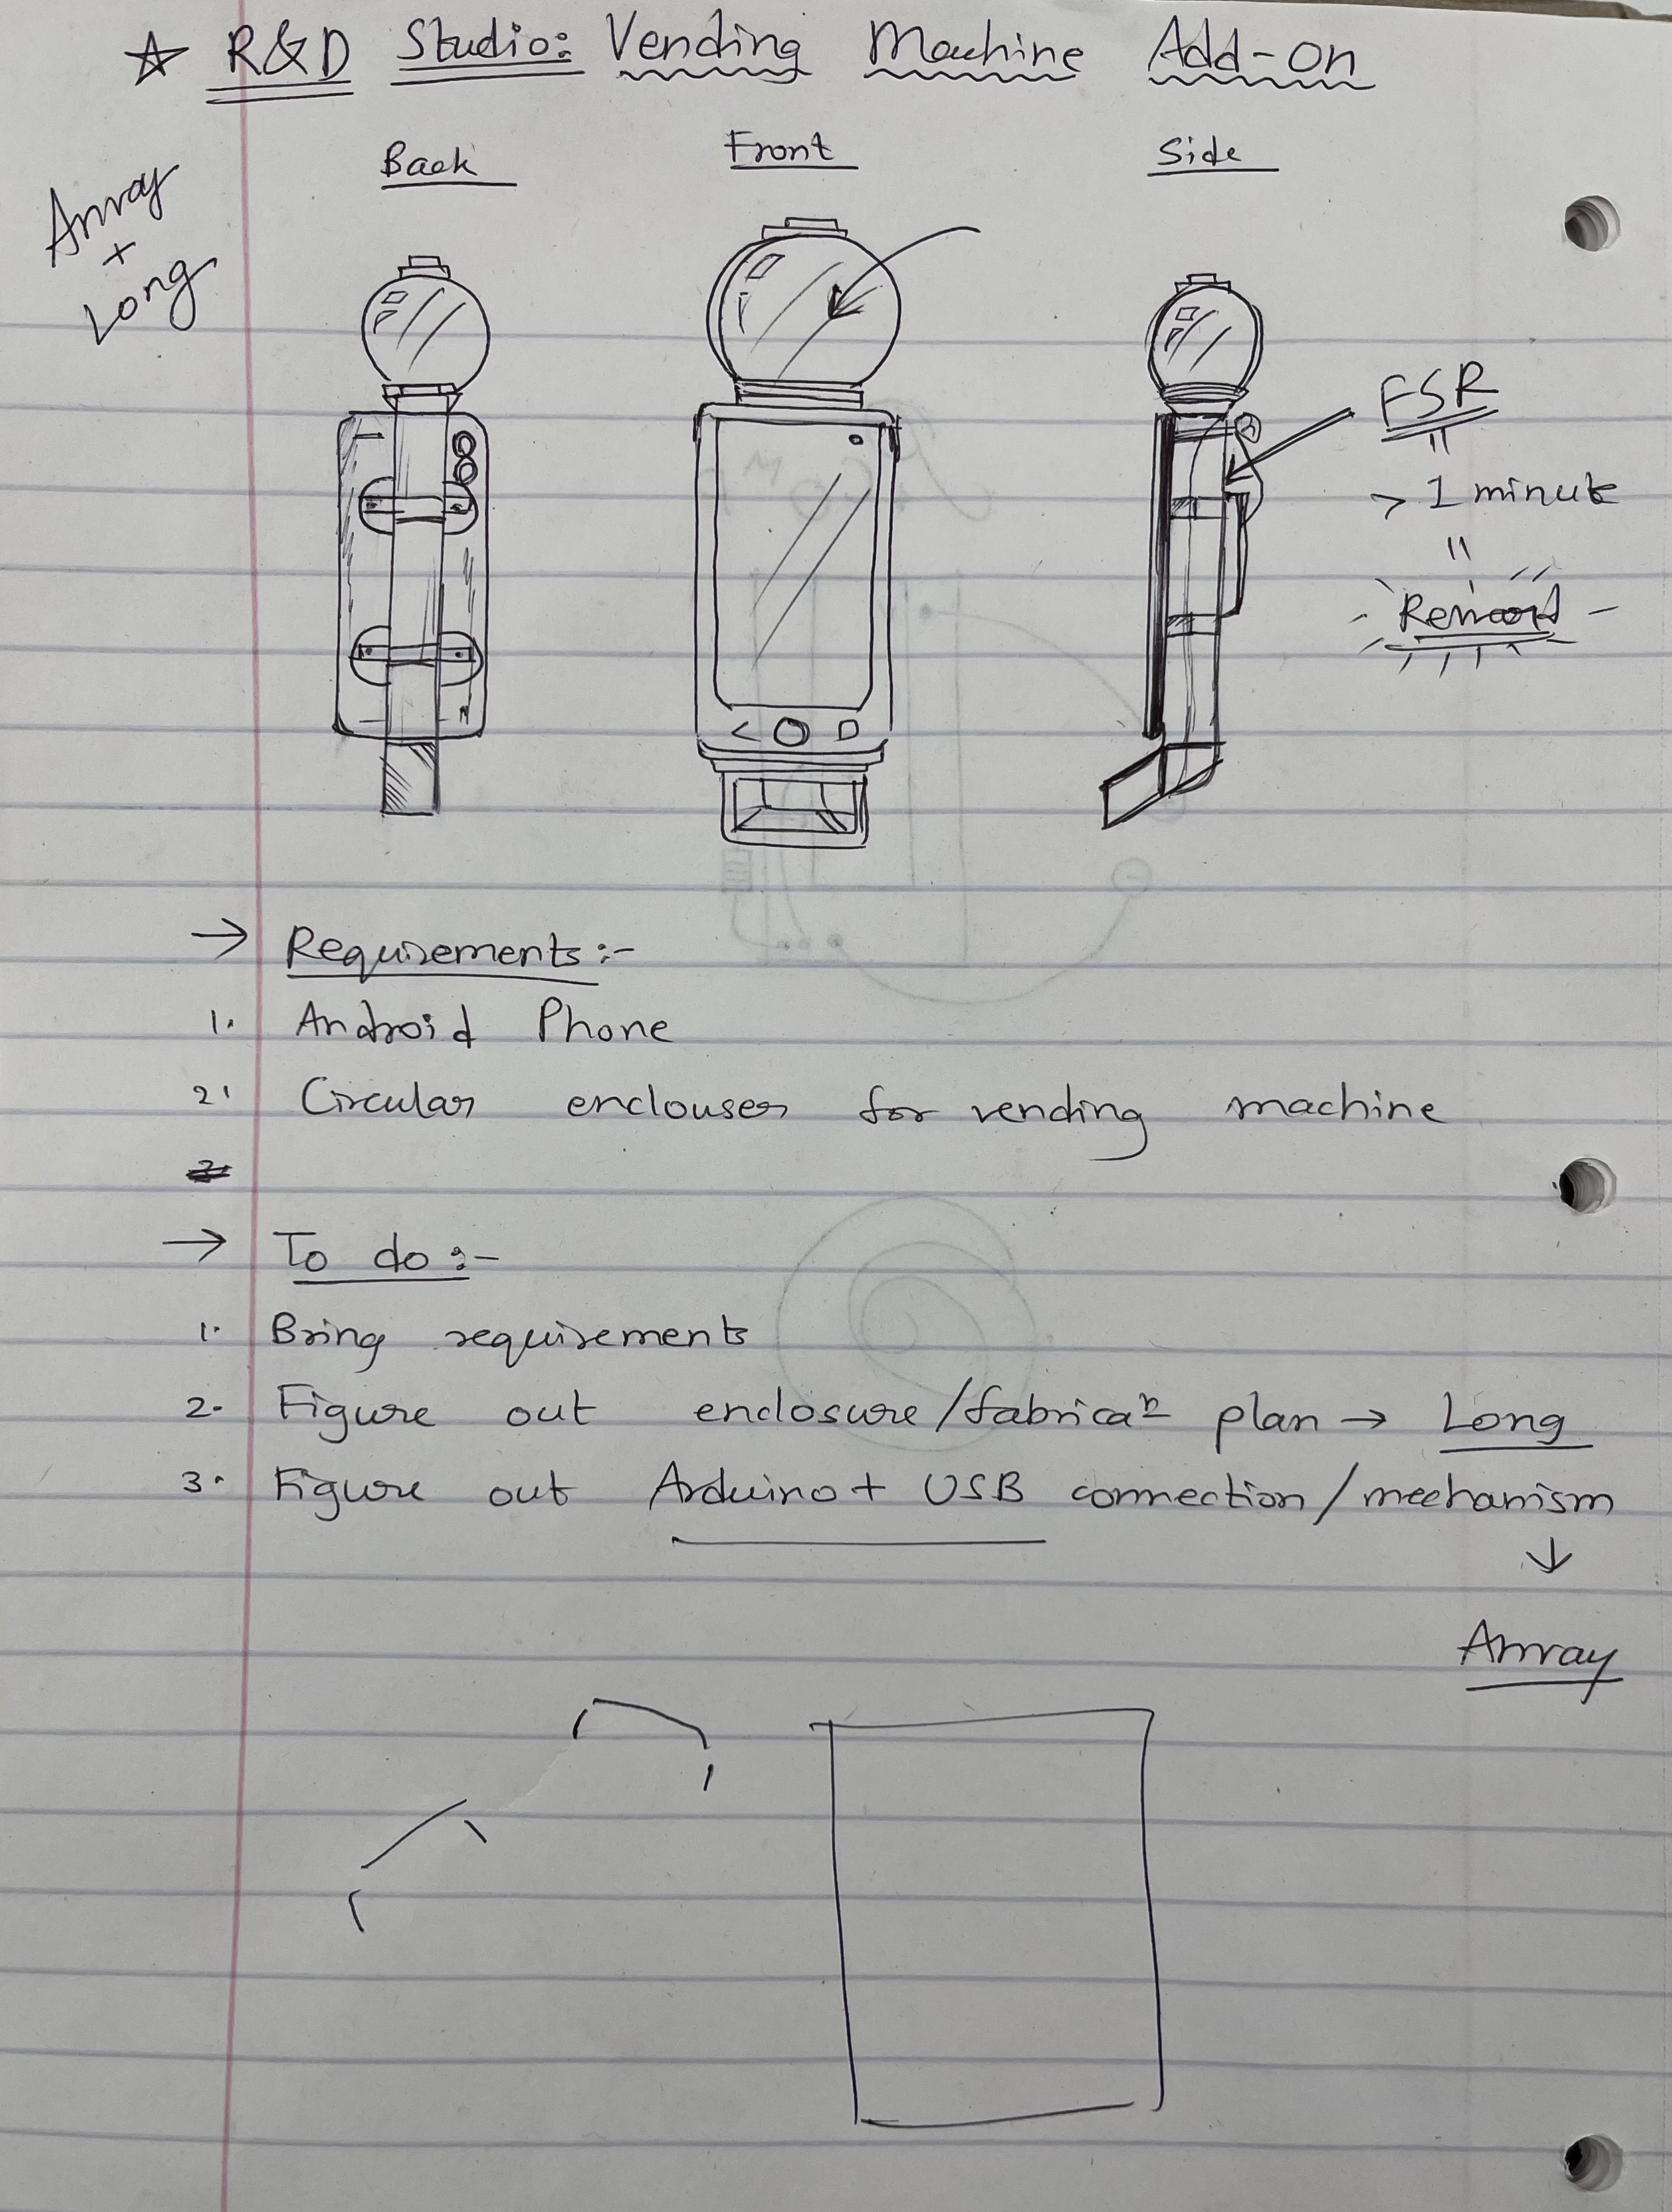 ☆ R&D Studio: Vending Machine Add-on
Back
Front
Side
Array
+
Long
FSR
"
> 1 minute
"
Reward
→ Requirements :-
1. Android Phone
2. Circular enclouser for vending machine
→ To do :-
1. Bring requirements
2. Figure out enclosure/fabricaⁿ plan → Long
3. Figure out Arduino + USB connection/mechanism
↓
Array